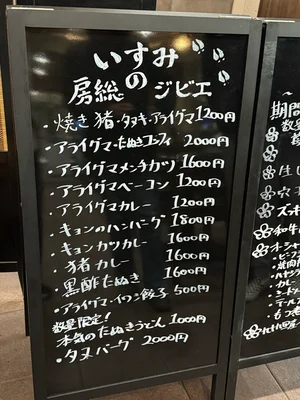 いすみの
房総 ジビエ
・焼き 猪・タヌキ・アライグマ 1200円
・アライグマ・たぬきコンフィ 2000円
・アライグマメンチカツ 1600円
・アライグマベーコン 1200円
・アライグマカレー 1200円
・キョンのハンバーグ 1800円
・キョンカツカレー 1600円
・猪カレー 1600円
・黒酢たぬき 1600円
・アライグマ・イノシシ餃子 500円
数量限定!
本気のたぬきうどん 1000円
・タヌバーグ 2000円
期間
数量
・ビーフ
・カレー